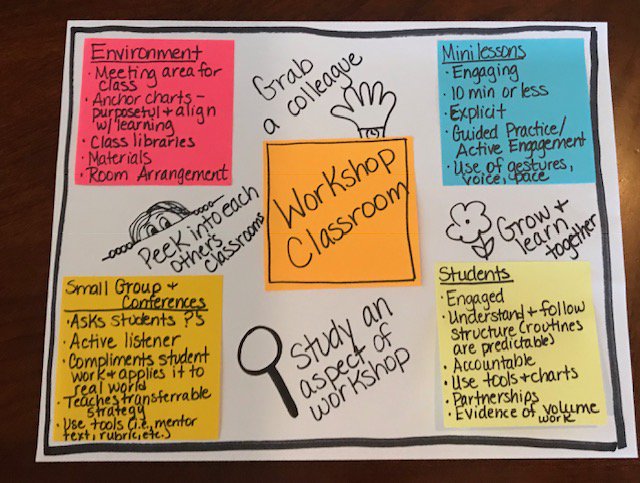 Environment
• Meeting area for
class
• Anchor charts –
purposeful + align
w/ learning
• Class libraries
• Materials
• Room Arrangement
Grab
a colleague
Mini lessons
• Engaging
• 10 min or less
• Explicit
• Guided Practice/
Active Engagement
• Use of gestures,
voice, pace
Workshop
Classroom
Peek into each
others
classrooms
Grow +
learn
together
Small Group +
Conferences
• Asks students ?s
• Active listener
• Compliments student
work + applies it to
real world
• Teaches transferrable
strategy
• Use tools (i.e. mentor
text, rubric, etc.)
Study an
aspect of
workshop
Students
• Engaged
• Understand + follow
structure (routines
are predictable)
• Accountable
• Use tools + charts
• Partnerships
• Evidence of volume
work